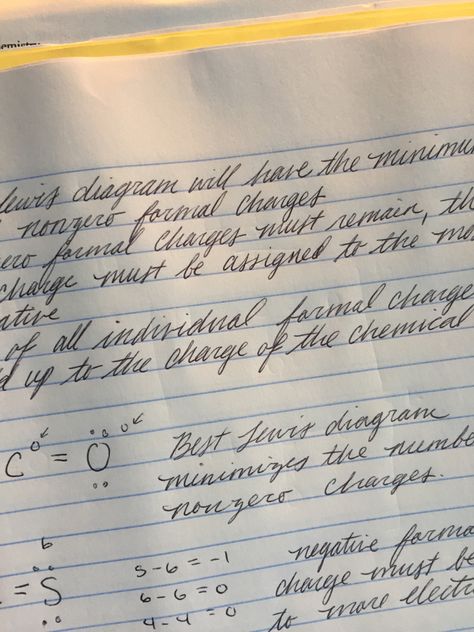 emistry
Lewis diagram will have the minimu
nonzero formal charges
ero formal charges must remain, th
charge must be assigned to the mo
ative
of all individual formal charge
d up to the charge of the chemical
C 0✓ = O 0✓
Best Lewis diagram
minimizes the numbe
nonzero charges.
6
= S
5-6 = -1
6-6 = 0
4-4 = 0
negative forma
charge must be
to more elect